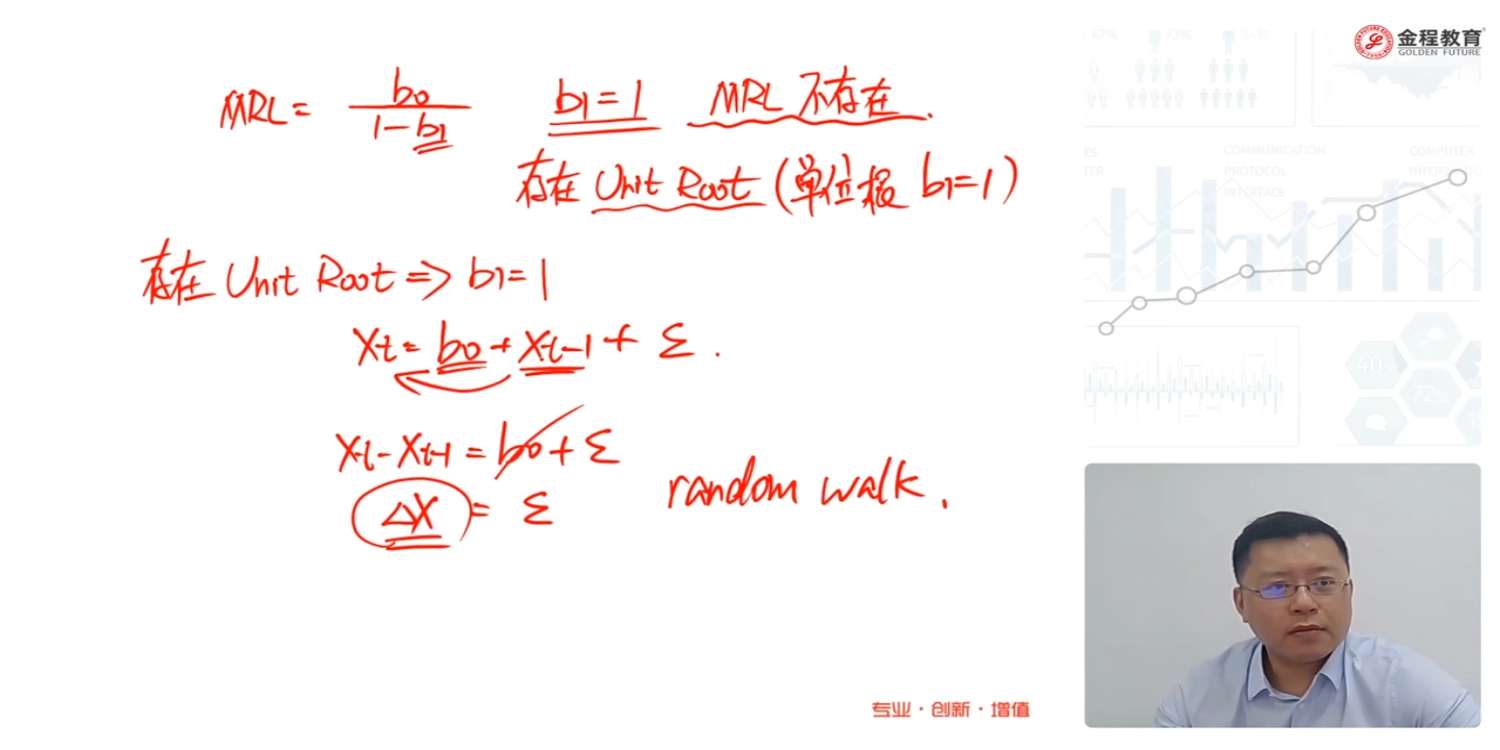 金程教育
GOLDEN FUTURE
MRL = b0 / 1-b1  b1=1  MRL 不存在.
存在 Unit Root (单位根 b1=1)
存在 Unit Root => b1=1
Xt = b0 + Xt-1 + ε .
Xt - Xt-1 = b0 + ε
ΔX = ε
random walk .
专业·创新·增值
COMMUNICATION
PROTOCOL
INTERFACE
COMPUTER